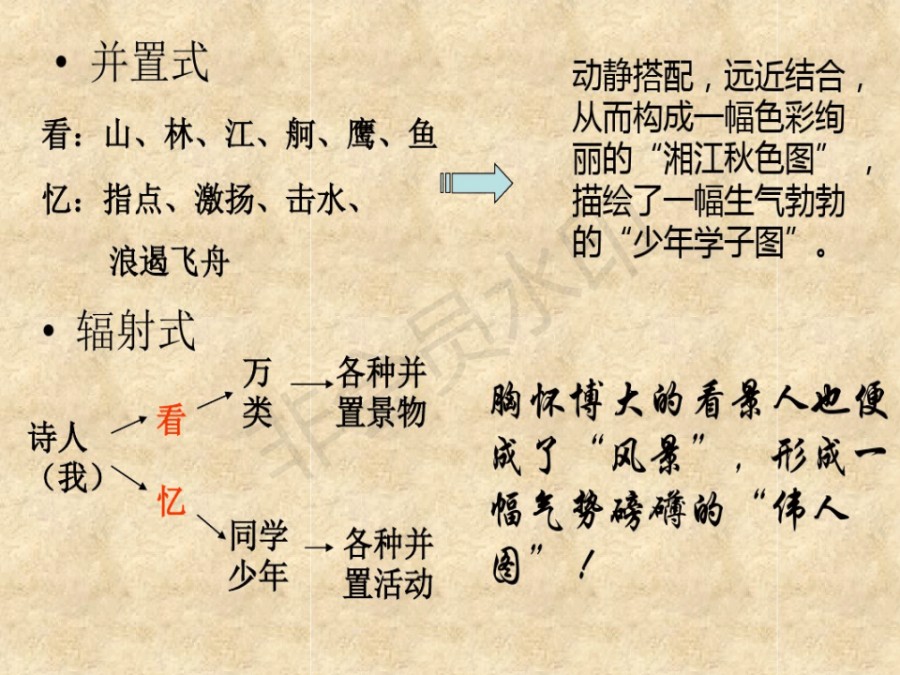 • 并置式
看：山、林、江、舸、鹰、鱼
忆：指点、激扬、击水、
浪遏飞舟
动静搭配，远近结合，
从而构成一幅色彩绚
丽的“湘江秋色图”，
描绘了一幅生气勃勃
的“少年学子图”。
• 辐射式
诗人
（我）
看
万
类
各种并
置景物
忆
同学
少年
各种并
置活动
胸怀博大的看景人也便
成了“风景”，形成一
幅气势磅礴的“伟人
图”！
非会员水印